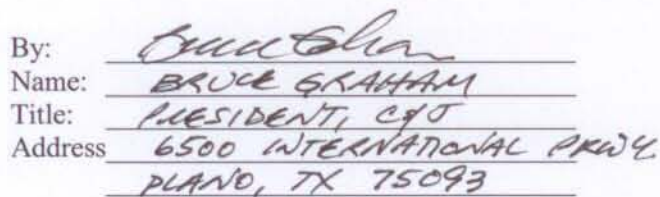 By: Bruce Graham
Name: BRUCE GRAHAM
Title: PRESIDENT, C&J
Address 6500 INTERNATIONAL PKWY.
PLANO, TX 75093